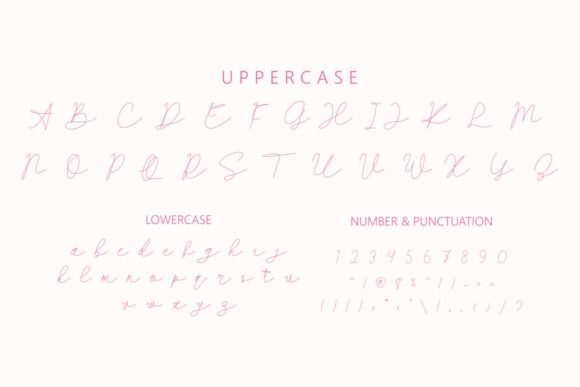 UPPERCASE
A B C D E F G H I J K L M
N O P Q R S T U V W X Y Z
LOWERCASE
a b c d e f g h i j
k l m n o p q r s t u
v w x y z
NUMBER & PUNCTUATION
1 2 3 4 5 6 7 8 9 0